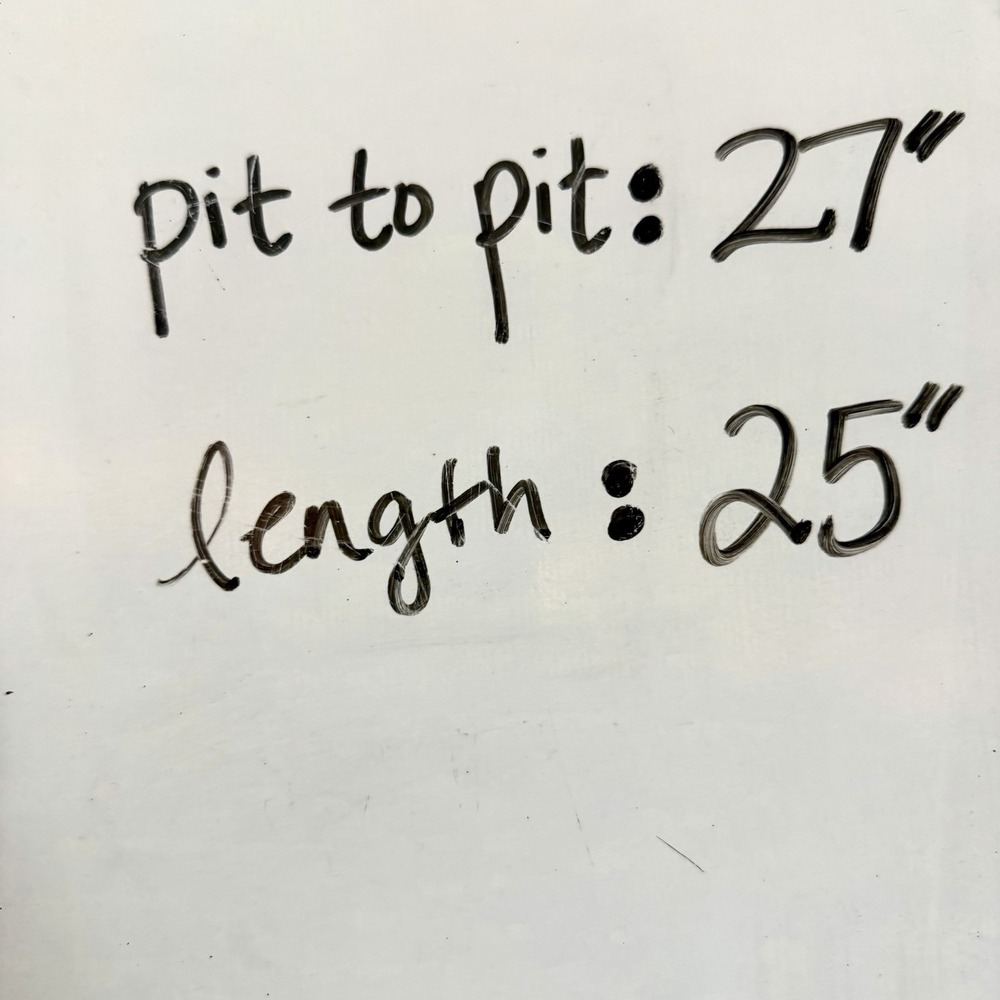 pit to pit: 27"
length: 25"